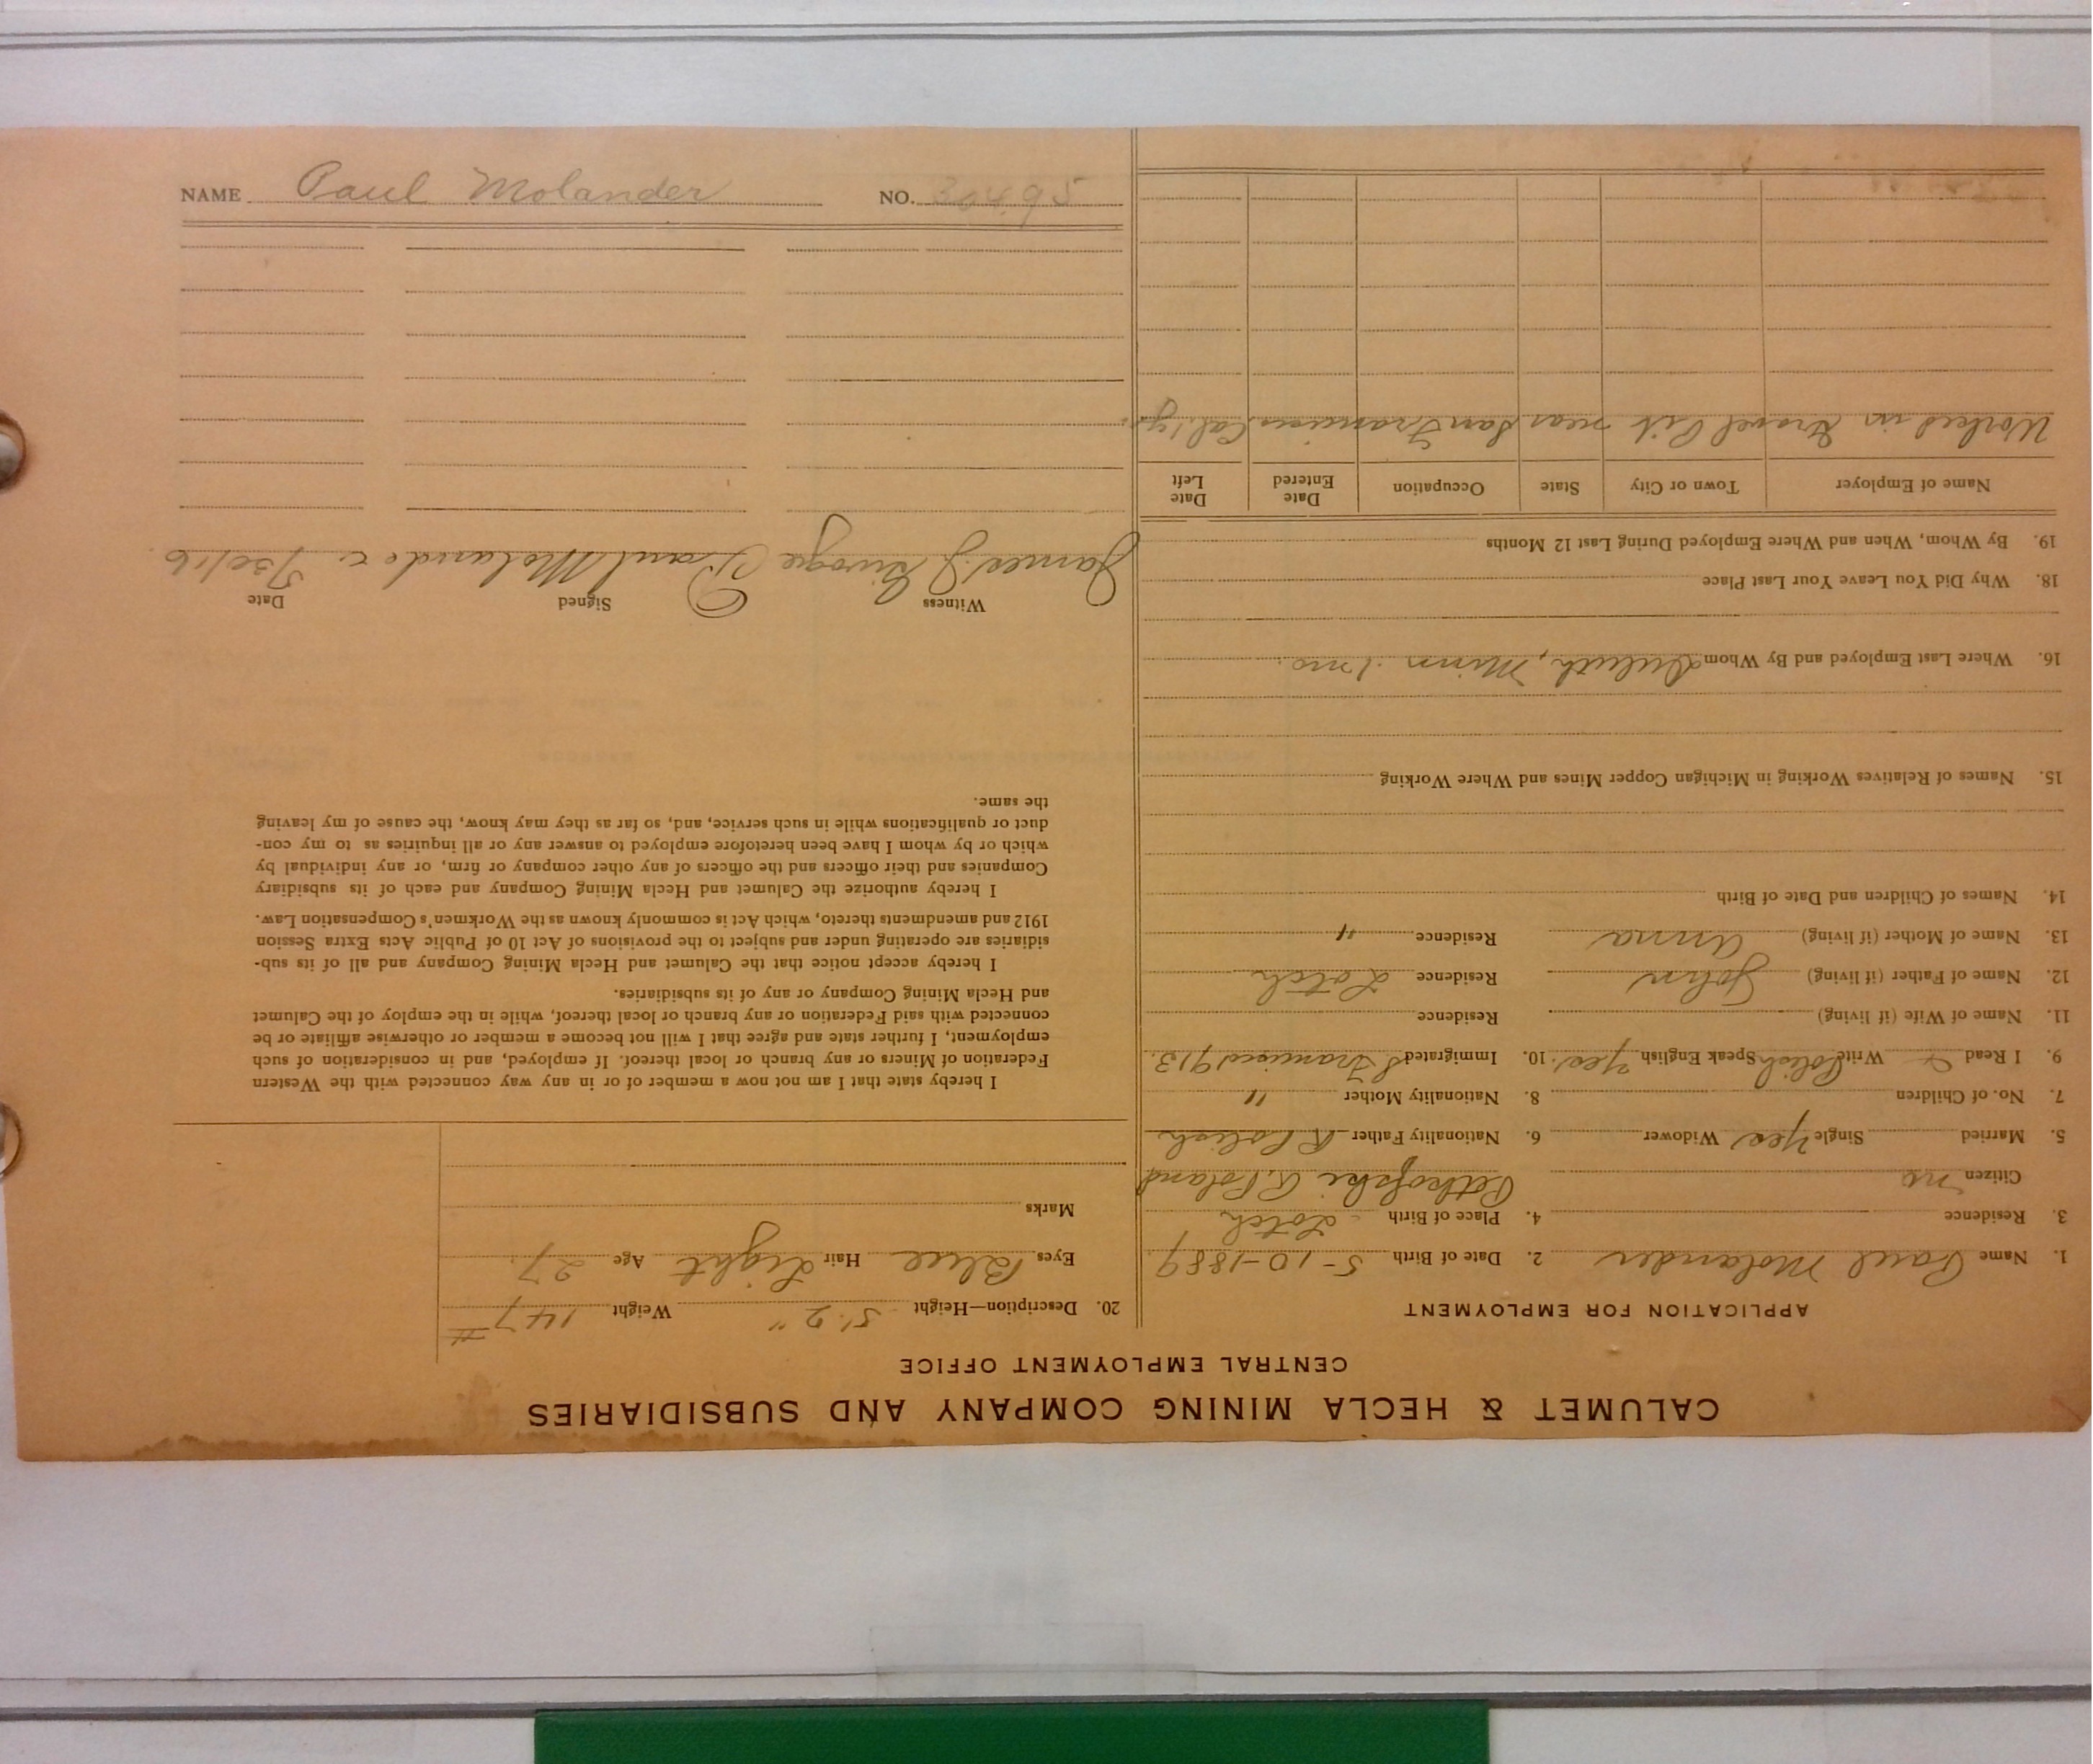 CALUMET & HECLA MINING COMPANY AND SUBSIDIARIES
CENTRAL EMPLOYMENT OFFICE
APPLICATION FOR EMPLOYMENT
1. Name Paul Molander 2. Date of Birth 5-10-1889
3. Residence 4. Place of Birth Lotch
Citizen no R. Poland
5. Married Single Yes Widower 6. Nationality Father R Polish
7. No. of Children 8. Nationality Mother "
9. I Read & Write Polish Speak English Yes. 10. Immigrated S Francisco 1913.
11. Name of Wife (if living) Residence
12. Name of Father (if living) John Residence Lotch
13. Name of Mother (if living) Anna Residence "
14. Names of Children and Date of Birth
15. Names of Relatives Working in Michigan Copper Mines and Where Working
16. Where Last Employed and By Whom Duluth, Minn. 1 mo.
18. Why Did You Leave Your Last Place
19. By Whom, When and Where Employed During Last 12 Months
Name of Employer Town or City State Occupation Date Entered Date Left
Worked in Gravel Pit near San Francisco Cal. 1 yr.
20. Description—Height 5'.2" Weight 147 #
Eyes Blue Hair Light Age 27.
Marks
I hereby state that I am not now a member of or in any way connected with the Western
Federation of Miners or any branch or local thereof. If employed, and in consideration of such
employment, I further state and agree that I will not become a member or otherwise affiliate or be
connected with said Federation or any branch or local thereof, while in the employ of the Calumet
and Hecla Mining Company or any of its subsidiaries.
I hereby accept notice that the Calumet and Hecla Mining Company and all of its sub-
sidiaries are operating under and subject to the provisions of Act 10 of Public Acts Extra Session
1912 and amendments thereto, which Act is commonly known as the Workmen's Compensation Law.
I hereby authorize the Calumet and Hecla Mining Company and each of its subsidiary
Companies and their officers and the officers of any other company or firm, or any individual by
which or by whom I have been heretofore employed to answer any or all inquiries as to my con-
duct or qualifications while in such service, and, so far as they may know, the cause of my leaving
the same.
Witness Signed Date
James J. Paul Molander
NAME Paul Molander NO. 30495